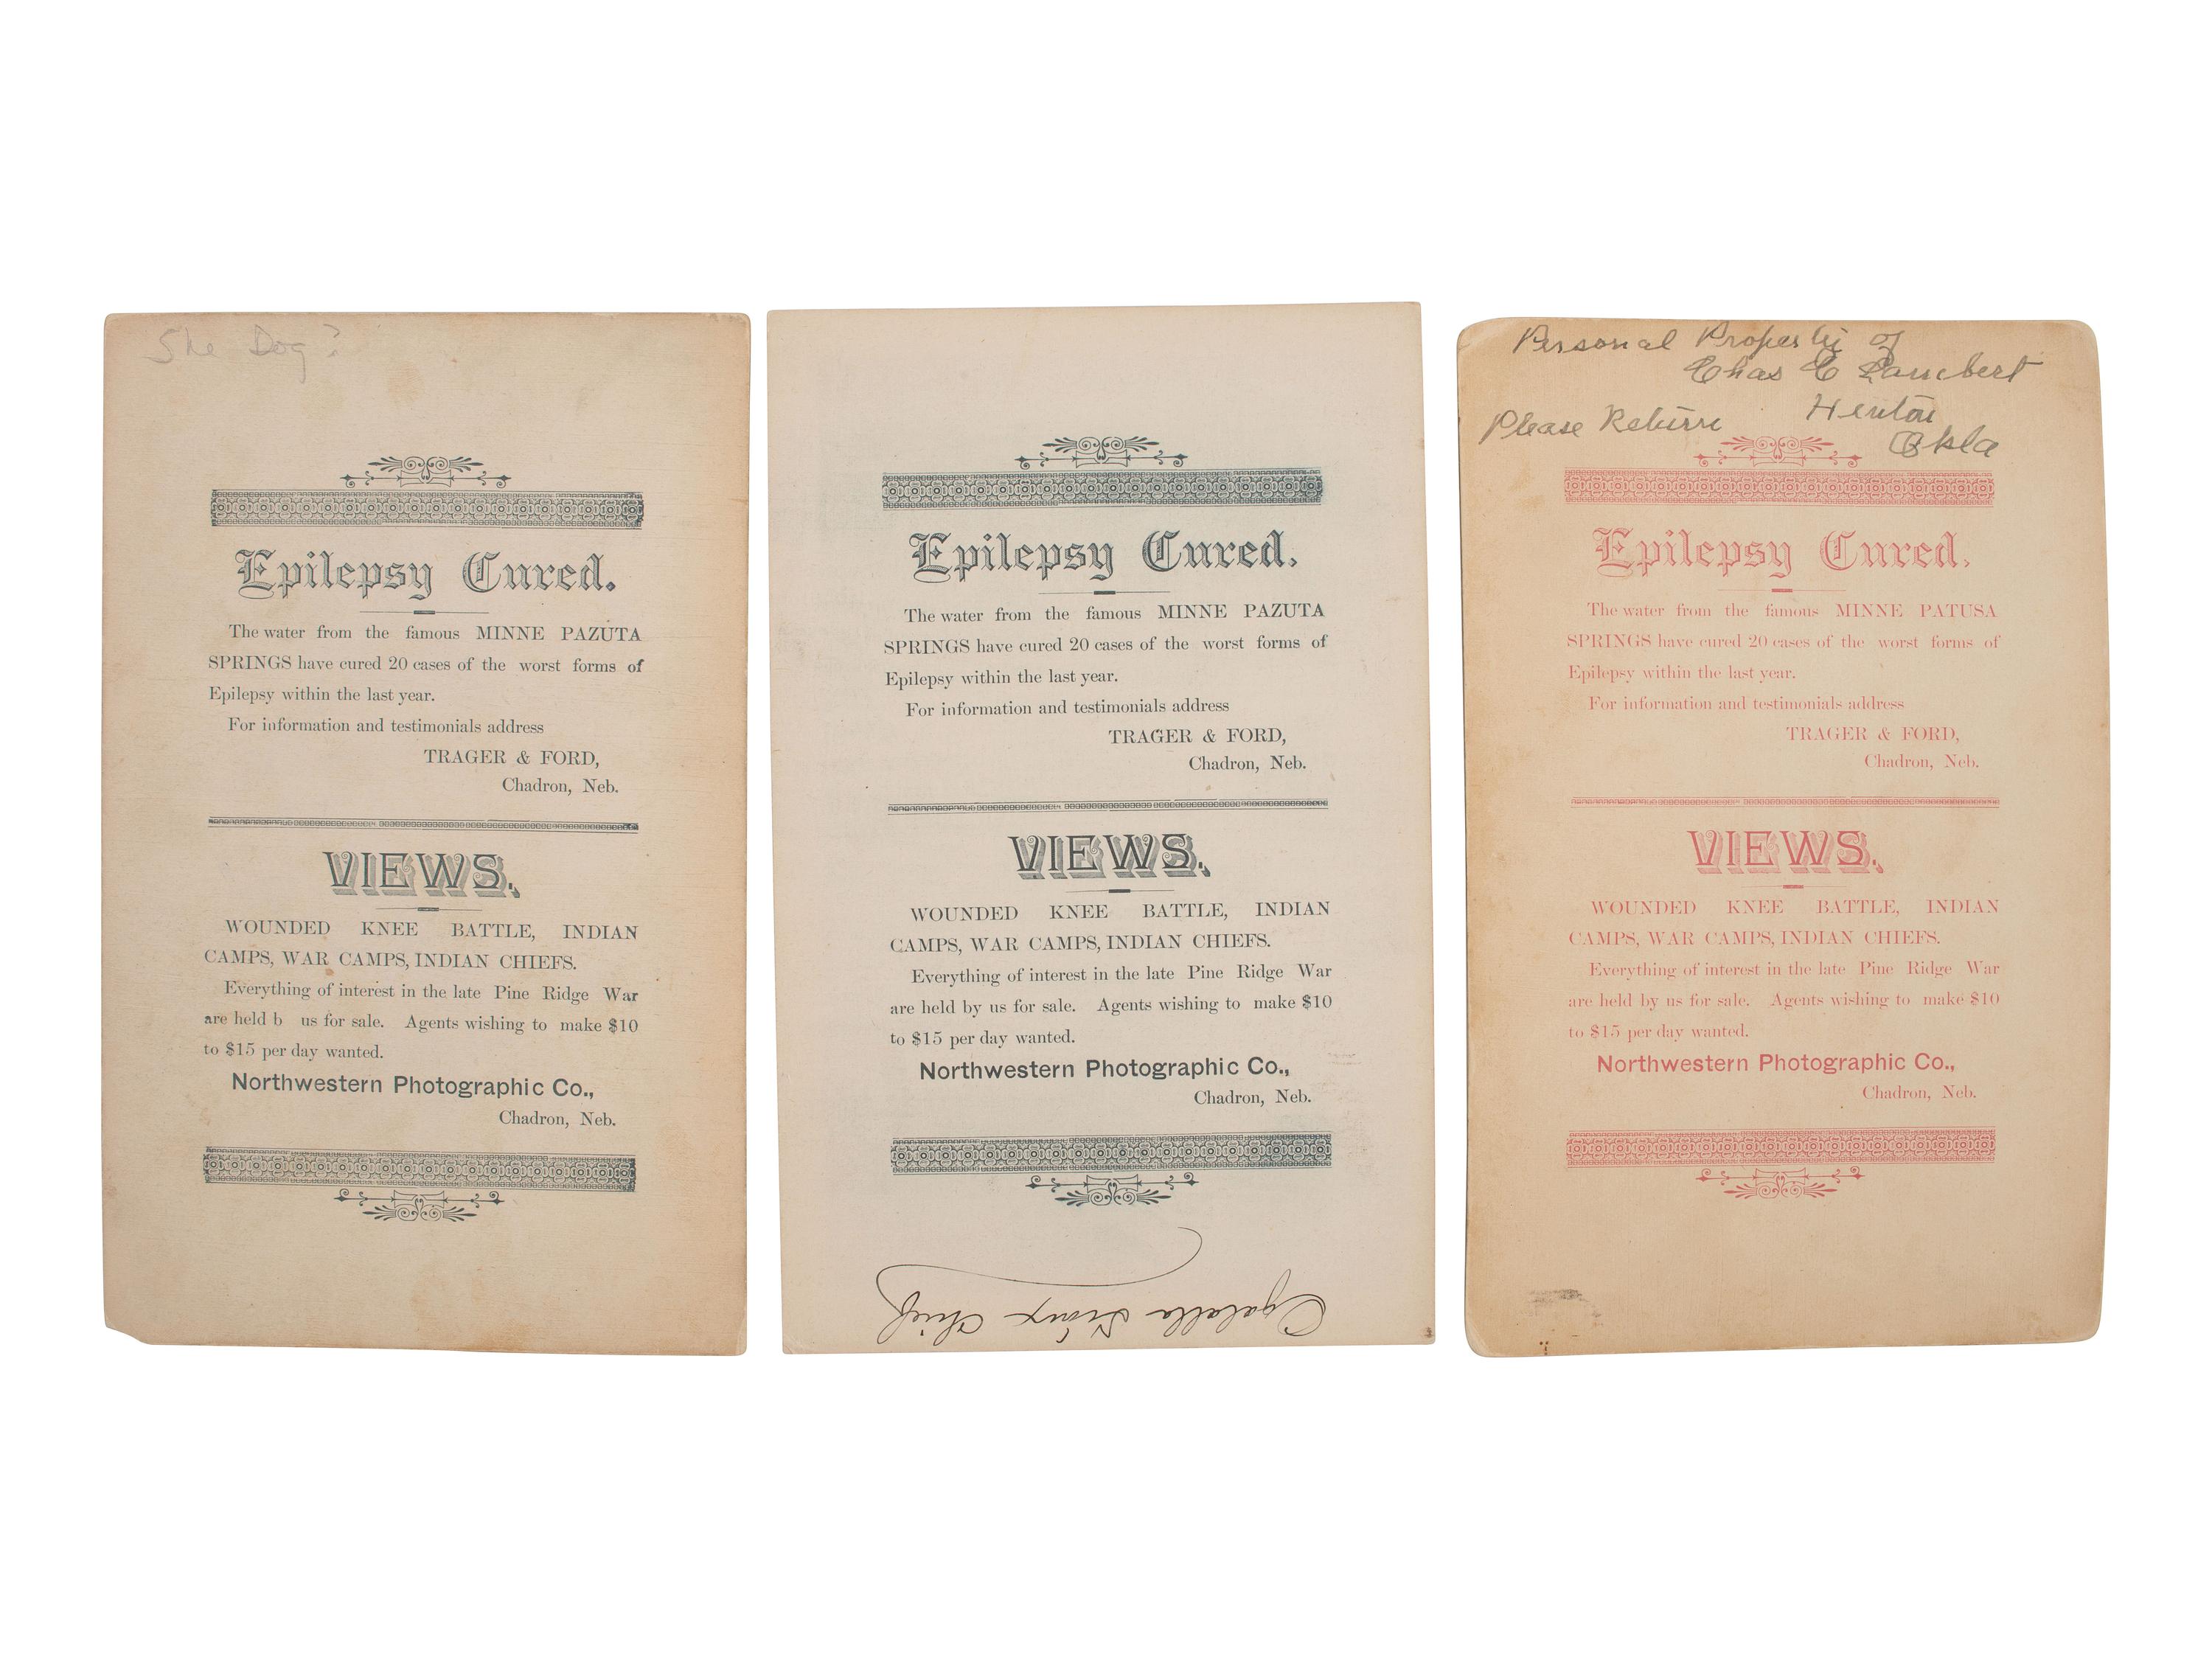 She Dog?
Epilepsy Cured.
The water from the famous MINNE PAZUTA
SPRINGS have cured 20 cases of the worst forms of
Epilepsy within the last year.
For information and testimonials address
TRAGER & FORD,
Chadron, Neb.
VIEWS.
WOUNDED KNEE BATTLE, INDIAN
CAMPS, WAR CAMPS, INDIAN CHIEFS.
Everything of interest in the late Pine Ridge War
are held b us for sale. Agents wishing to make $10
to $15 per day wanted.
Northwestern Photographic Co.,
Chadron, Neb.
Epilepsy Cured.
The water from the famous MINNE PAZUTA
SPRINGS have cured 20 cases of the worst forms of
Epilepsy within the last year.
For information and testimonials address
TRAGER & FORD,
Chadron, Neb.
VIEWS.
WOUNDED KNEE BATTLE, INDIAN
CAMPS, WAR CAMPS, INDIAN CHIEFS.
Everything of interest in the late Pine Ridge War
are held by us for sale. Agents wishing to make $10
to $15 per day wanted.
Northwestern Photographic Co.,
Chadron, Neb.
Ogalalla Sioux Chief
Personal Property of
Chas E Lambert
Please Return Henton
Okla
Epilepsy Cured.
The water from the famous MINNE PATUSA
SPRINGS have cured 20 cases of the worst forms of
Epilepsy within the last year.
For information and testimonials address
TRAGER & FORD,
Chadron, Neb.
VIEWS.
WOUNDED KNEE BATTLE, INDIAN
CAMPS, WAR CAMPS, INDIAN CHIEFS.
Everything of interest in the late Pine Ridge War
are held by us for sale. Agents wishing to make $10
to $15 per day wanted.
Northwestern Photographic Co.,
Chadron, Neb.